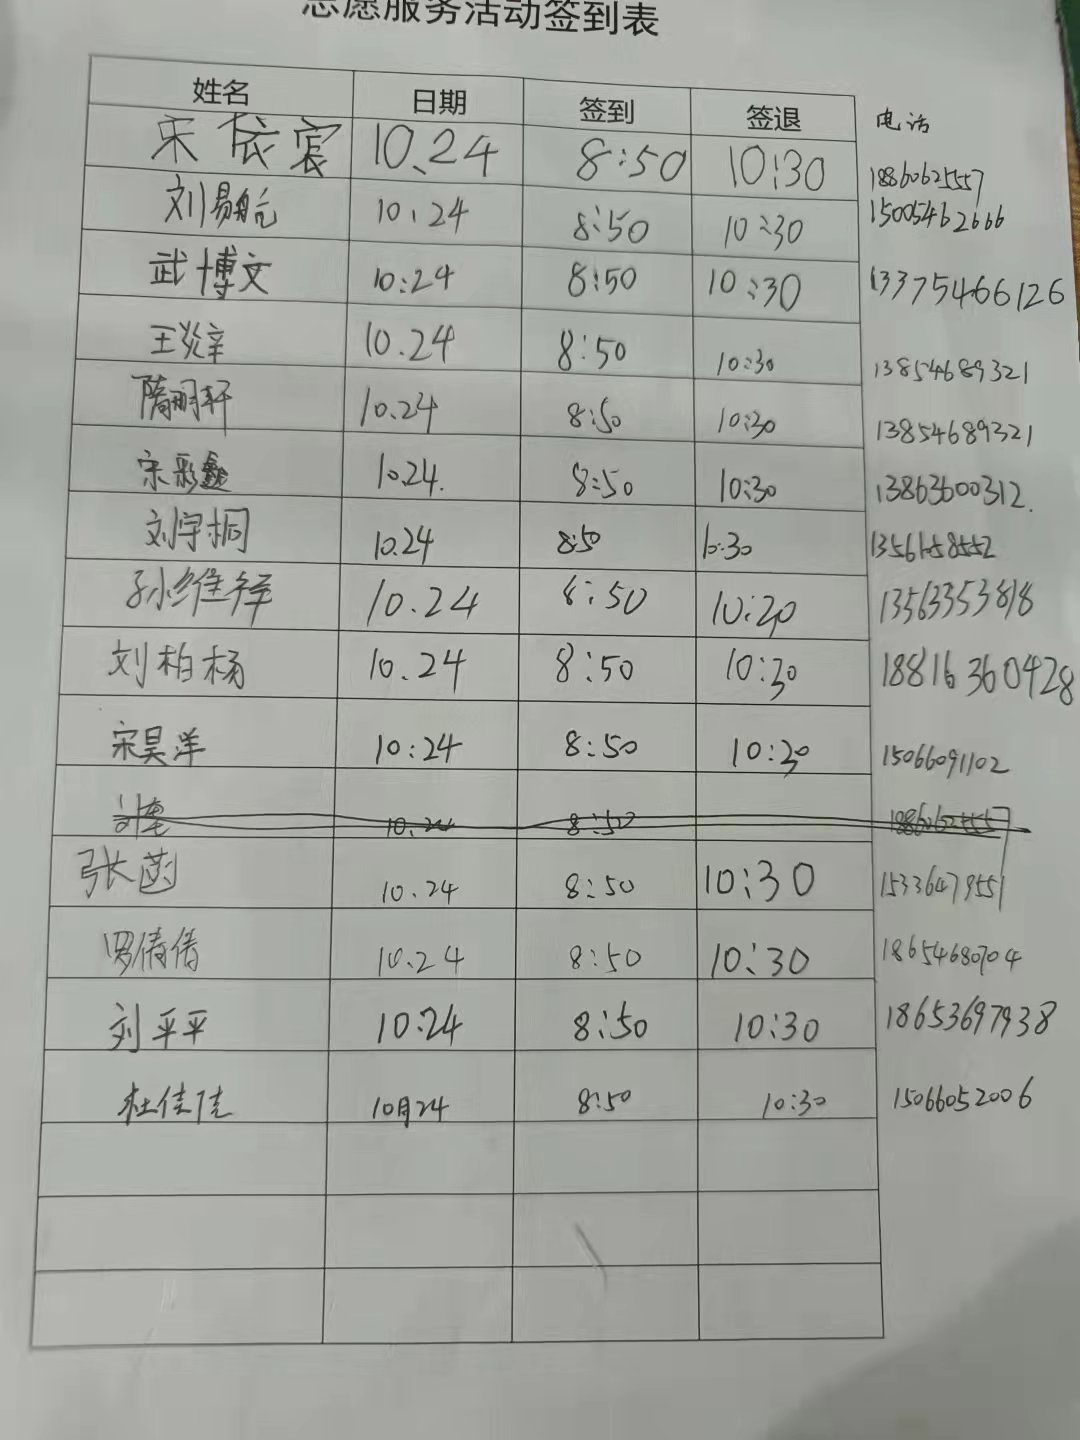 志愿服务活动签到表
姓名 日期 签到 签退 电话
宋依宸 10.24 8:50 10:30 18860625557
刘易航 10.24 8:50 10:30 15005462666
武博文 10:24 8:50 10:30 13375466126
王炎辛 10.24 8:50 10:30 13854689321
隋明轩 10.24 8:50 10:30 13854689321
宋彩鑫 10.24. 8:50 10:30 13863600312.
刘宇桐 10.24 8:50 10:30 1356158552
孙维祥 10.24 8:50 10:20 13563353818
刘柏杨 10.24 8:50 10:30 18816360428
宋昊洋 10:24 8:50 10:30 15066091102
10.24 8:50 18860625557
张茵 10.24 8:50 10:30 15336479551
罗倩倩 10.24 8:50 10:30 18654680704
刘平平 10:24 8:50 10:30 18653697938
杜佳佳 10月24 8:50 10:30 15066052006